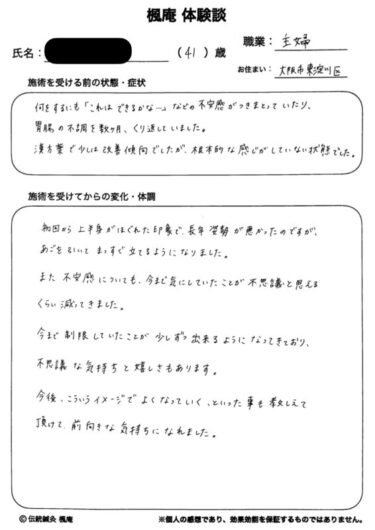 楓庵 体験談
氏名： （41）歳
職業：主婦
お住まい：大阪市東淀川区
施術を受ける前の状態・症状
何をするにも「これはできるかな…」などの不安感がつきまとっていたり、
胃腸の不調を数ヶ月、くり返していました。
漢方薬で少しは改善傾向でしたが、根本的な感じがしていない状態でした。
施術を受けてからの変化・体調
初回から上半身がほぐれた印象で、長年姿勢が悪かったのですが、
あごを引いてまっすぐ立てるようになりました。
また不安感についても、今まで気にしていたことが不思議と思える
くらい減ってきました。
今まで制限していたことが少しずつ出来るようになってきており、
不思議な気持ちと嬉しさもあります。
今後、こういうイメージでよくなっていく、といった事も教えて
頂けて、前向きな気持ちになれました。
©伝統鍼灸 楓庵
※個人の感想であり、効果効能を保証するものではありません。